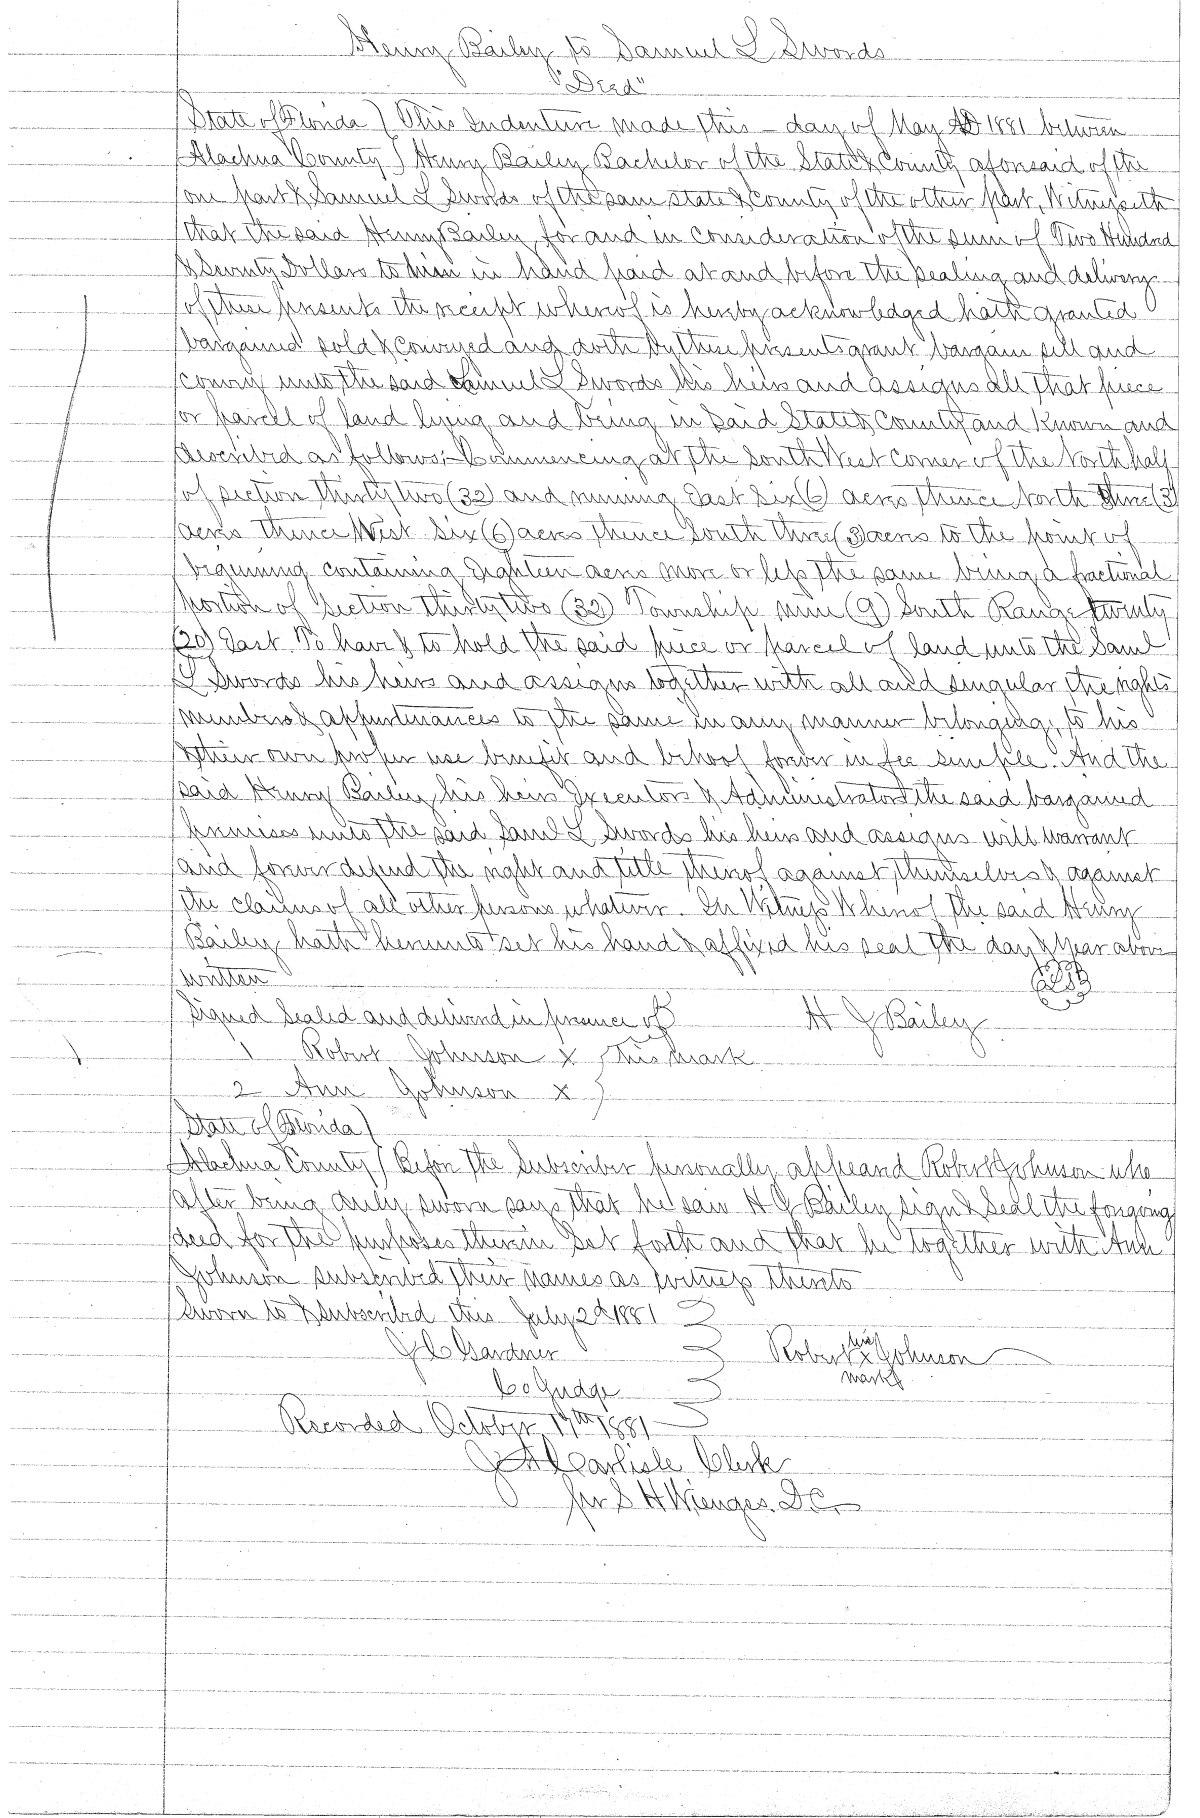 Henry Bailey to Samuel L Swords
"Deed"
State of Florida ) This Indenture made this — day of May AD 1881 between
Alachua County ) Henry Bailey Bachelor of the State & County aforesaid of the
one part & Samuel L Swords of the same state & County of the other part, Witnesseth
that the said Henry Bailey, for and in consideration of the sum of Two Hundred
& Seventy Dollars to him in hand paid at and before the sealing and delivery
of these presents the receipt whereof is hereby acknowledged hath granted
bargained sold & conveyed and doth by these presents grant bargain sell and
convey unto the said Samuel L Swords his heirs and assigns all that piece
or parcel of land lying and being in Said State & County and Known and
described as follows:- Commencing at the South West corner of the North half
of section thirty two (32) and running East Six (6) acres thence North three (3)
acres thence West Six (6) acres thence South three (3) acres to the point of
beginning containing Eighteen acres more or less the same being a fractional
portion of Section thirty two (32) Township nine (9) South Range twenty
(20) East. To have & to hold the said piece or parcel of land unto the Saml
L Swords his heirs and assigns together with all and singular the rights
members & appurtenances to the same in any manner belonging, to his
& their own proper use benefit and behoof forever in fee simple. And the
said Henry Bailey, his heirs Executors & Administrators the said bargained
premises unto the said Saml L Swords his heirs and assigns will warrant
and forever defend the right and title thereof against themselves & against
the claims of all other persons whatever. In Witness Whereof the said Henry
Bailey hath hereunto set his hand & affixed his seal the day & Year above
written
Signed Sealed and delivered in presence of H J Bailey
1 Robert Johnson x ) his mark
2 Ann Johnson x )
State of Florida )
Alachua County ) Before the Subscriber personally appeared Robert Johnson who
after being duly sworn says that he saw H J Bailey sign & Seal the forgoing
deed for the purposes therein Set forth and that he together with Ann
Johnson subscribed their names as witness thereto
Sworn to & subscribed this July 2d 1881
his
J C Gardner Robert x Johnson
mark
Co Judge
Recorded October 17th 1881
J A Carlisle Clerk
per S H Wienges. D.C.